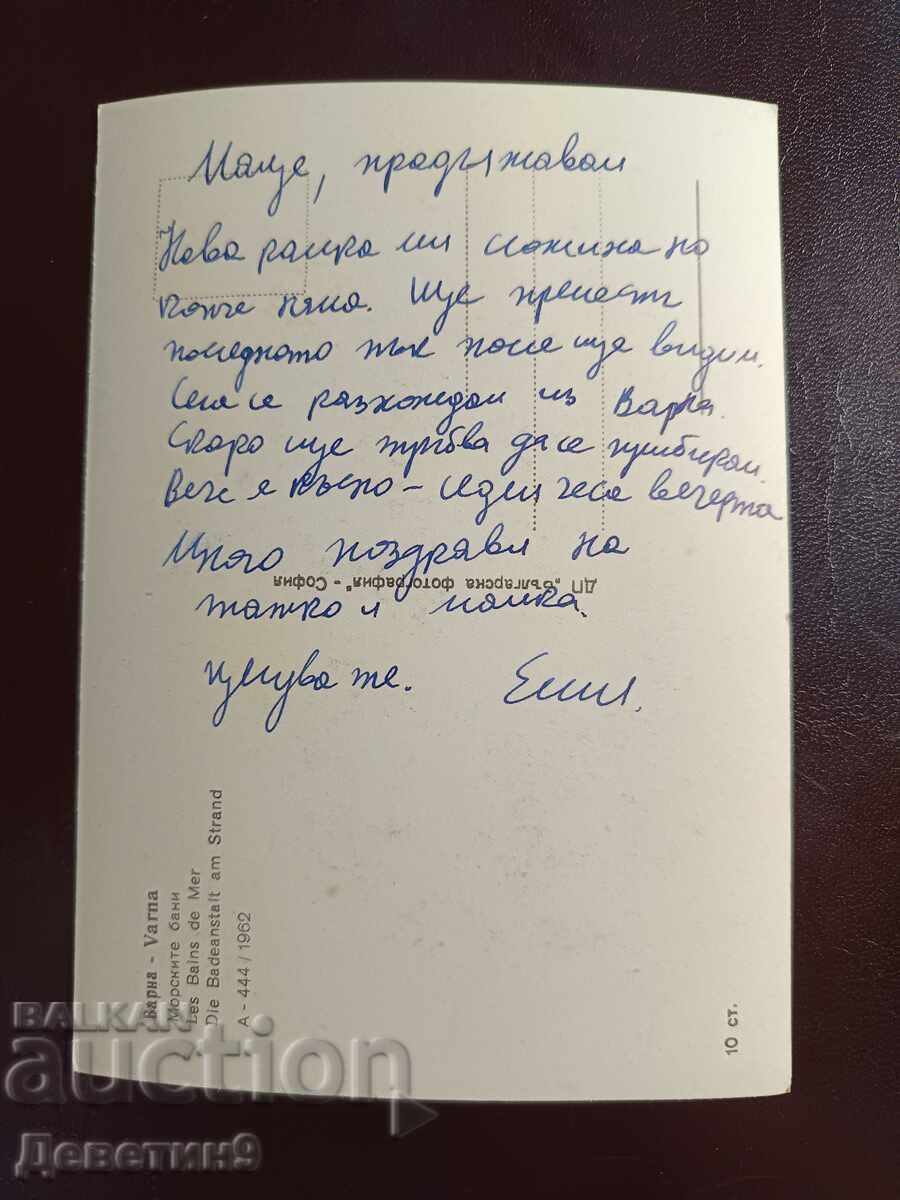 Маце, продължавам
Нова рамка ми сложиха но
копче няма. Ще
последното пък после ще видим.
Сега се разхождам из Варна.
Скоро ще трябва да се прибирам.
Вече е късно – седем часа вечерта
Много поздрави на
татко и майка.
целува те. Емил.
ДП „Българска фотография" - София
Варна - Varna
Морските бани
Les Bains de Mer
Die Badeanstalt am Strand
A - 444 / 1962
10 ст.
BALKAN
auction
Деветин9